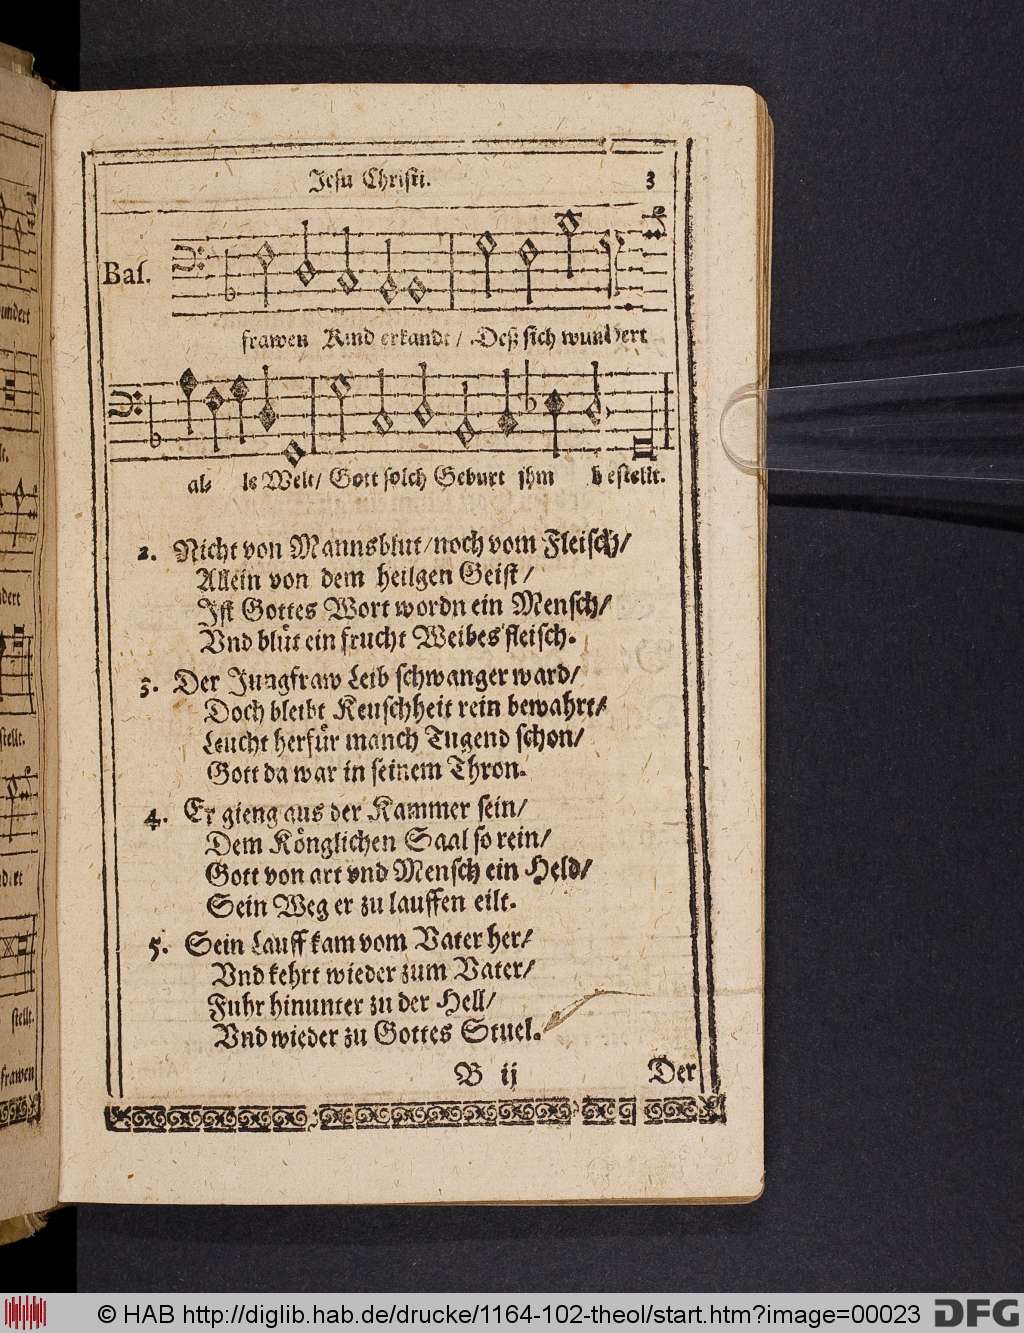 Jesu Christi. 3
Bas.
frawen Kind erkandt / Deß sich wundert
al⸗ le Welt / Gott solch Geburt ihm bestellt.
2. Nicht von Mannsblut / noch vom Fleisch /
Allein von dem heilgen Geist /
Ist Gottes Wort wordn ein Mensch /
Vnd blüt ein frucht Weibes fleisch.
3. Der Jungfraw Leib schwanger ward /
Doch bleibt Keuschheit rein bewahrt /
Leucht herfür manch Tugend schon /
Gott da war in seinem Thron.
4. Er gieng aus der Kammer sein /
Dem Könglichen Saal so rein /
Gott von art vnd Mensch ein Held /
Sein Weg er zu lauffen eilt.
5. Sein Lauff kam vom Vater her /
Vnd kehrt wieder zum Vater /
Fuhr hinunter zu der Hell /
Vnd wieder zu Gottes Stuel.
B ij Der
stellt.
frawen
© HAB http://diglib.hab.de/drucke/1164-102-theol/start.htm?image=00023 DFG